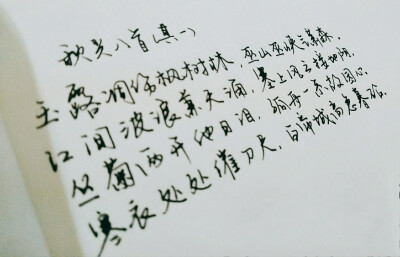 秋兴八首其一
玉露凋伤枫树林，巫山巫峡气萧森。
江间波浪兼天涌，塞上风云接地阴。
丛菊两开他日泪，孤舟一系故园心。
寒衣处处催刀尺，白帝城高急暮砧。